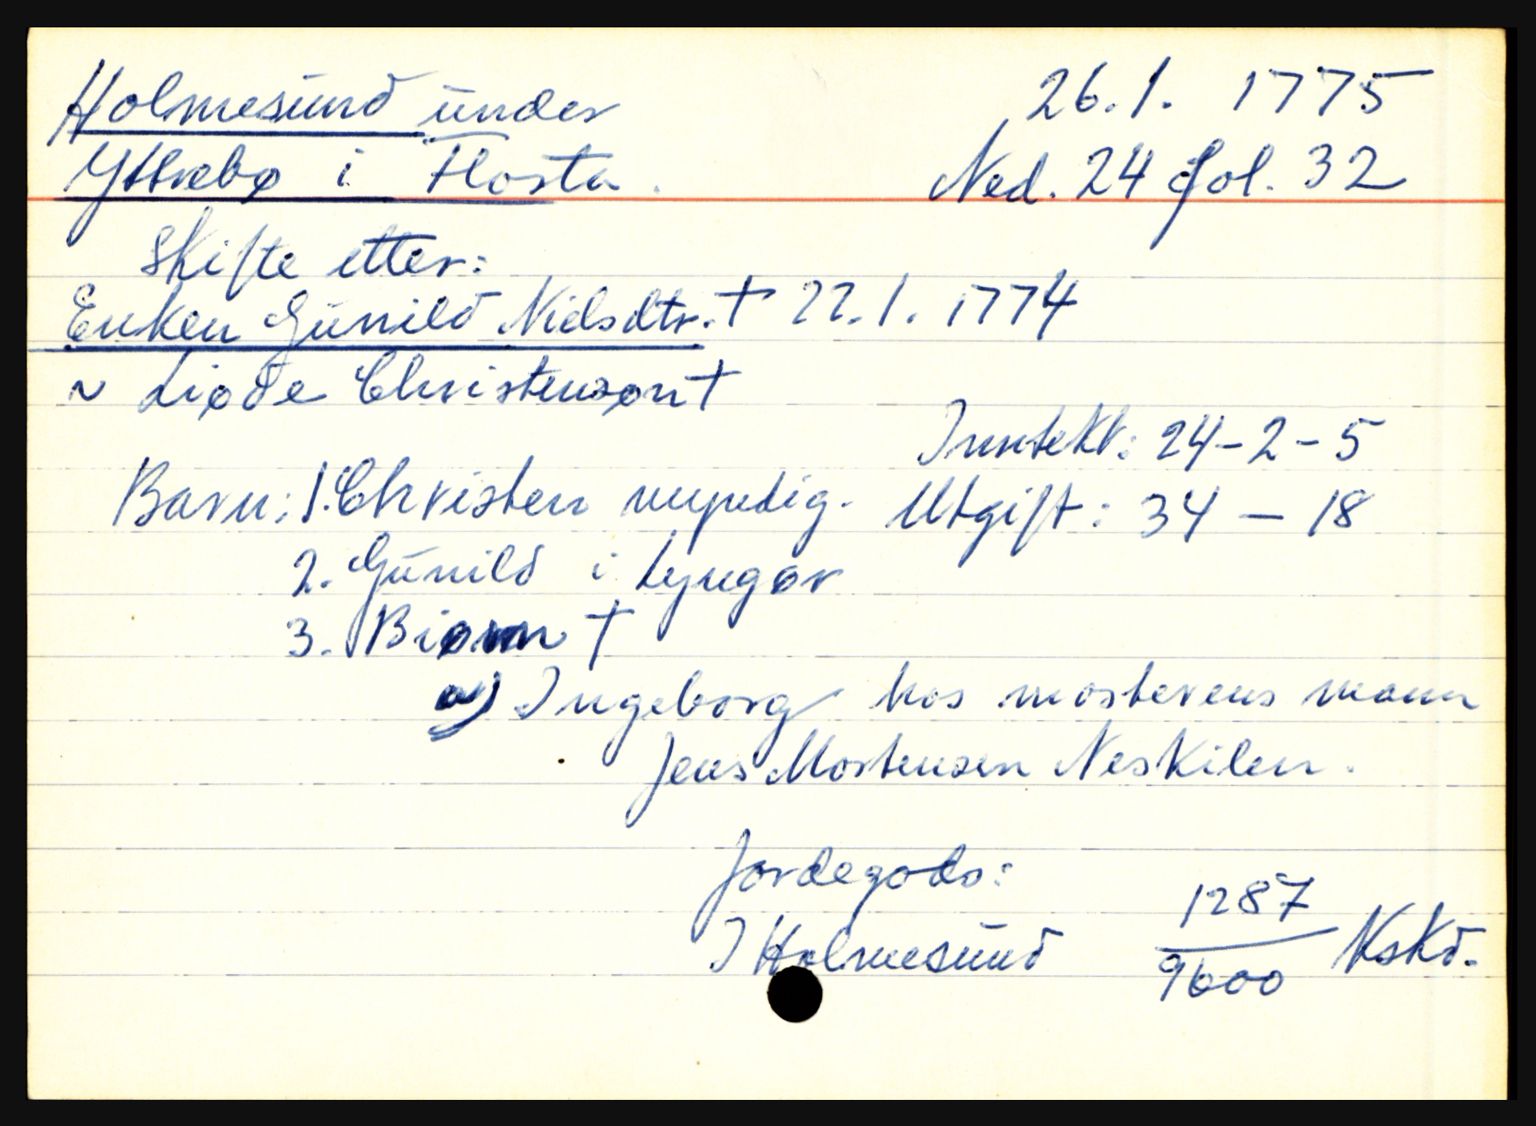 Holmesund under 26.1. 1775
Yttrebø i Flosta. Ned. 24 fol. 32
Skifte etter:
Enken Gunild Nielsdtr. † 22.1. 1774
~ Liøde Christenson †
Inntekt: 24-2-5
Barn: 1. Christen myndig. Utgift: 34 — 18
2. Gunild i Lyngør
3. Biørn †
a) Ingeborg hos mosterens mann
Jens Mortensen Neskilen.
Jordegods:
I Holmesund 1287/9600 Nskd.